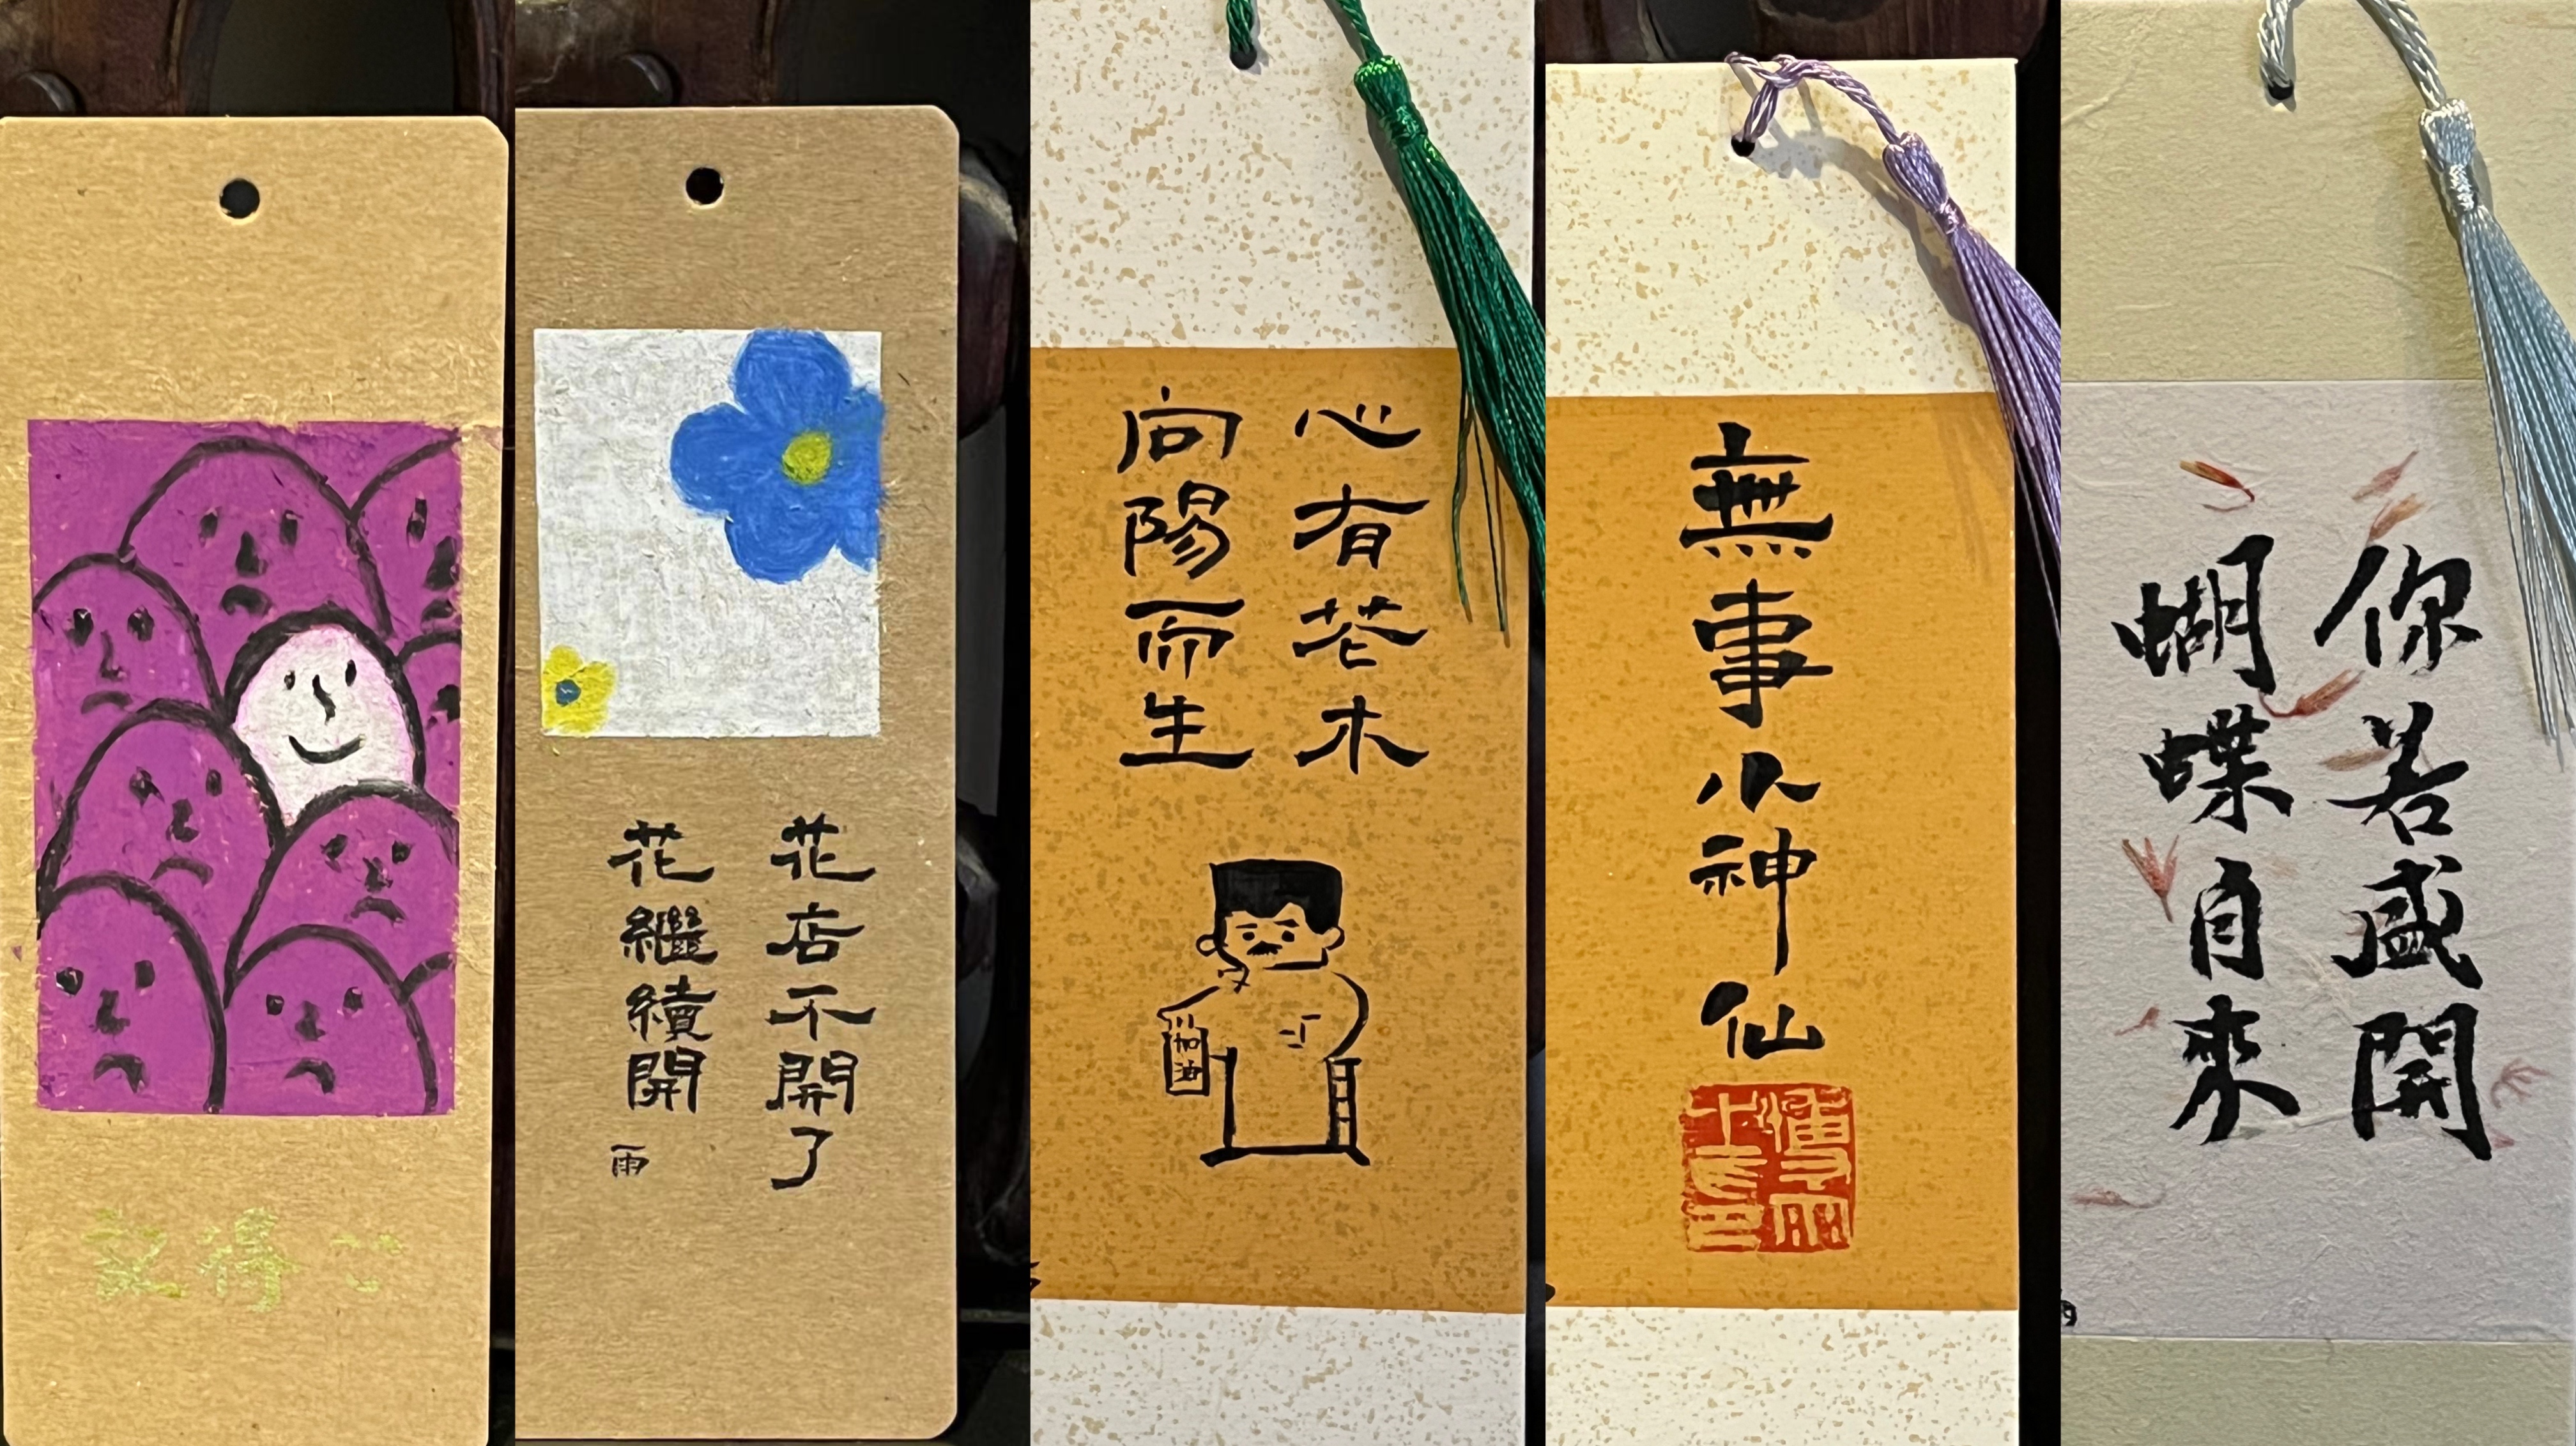 記得
花店不開了
花繼續開
雨
心有花木
向陽而生
加油
無事小神仙
你若盛開
蝴蝶自來